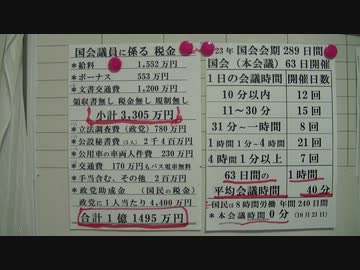 国会議員に係る 税金
*給料 1,552万円
*ボーナス 553万円
*文書交通費 1,200万円
領収書無し 税金無し 規制無し
小計 3,305万円
*立法調査費(政党)780万円
*公設秘書費(3人)2千4百万円
*公用車の車両人件費 230万円
*交通費 170万円もバス電車無料
*手当含む、その他 2百万円
*政党助成金 (国民の税金)
政党に1人当たり4,400万円
合計 1億1495万円
23年 国会会期 289日間
国会(本会議)63日開催
1日の会議時間 開催日数
10分以内 12回
11~30分 15回
31分~一時間 8回
1時間1分~4時間 21回
4時間1分以上 7回
63日間の 1時間
平均会議時間 40分
国民は8時間労働 年間240日間
*本会議時間0分(10月23日)